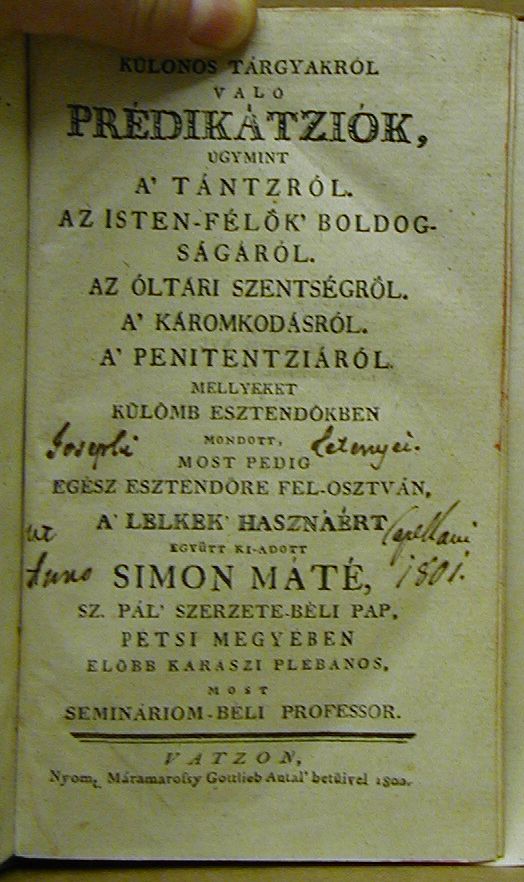 KÜLÖNÖS TÁRGYAKRÓL
VALÓ
PRÉDIKÁTZIÓK,
ÚGYMINT
A' TÁNTZRÓL.
AZ ISTEN-FÉLŐK' BOLDOG-
SÁGÁRÓL.
AZ ÓLTÁRI SZENTSÉGRŐL.
A' KÁROMKODÁSRÓL.
A' PENITENTZIÁRÓL.
MELLYEKET
KÜLÖMB ESZTENDŐKBEN
Josephi MONDOTT, Letenyei.
MOST PEDIG
EGÉSZ ESZTENDŐRE FEL-OSZTVÁN,
A' LELKEK' HASZNÁÉRT
ut EGYÜTT KI-ADOTT Capellani
Anno SIMON MÁTÉ, 1801.
SZ. PÁL' SZERZETE-BÉLI PAP,
PÉTSI MEGYÉBEN
ELŐBB KARASZI PLEBANOS,
MOST
SEMINÁRIOM-BÉLI PROFESSOR.
VÁTZON,
Nyomt. Máramarossy Gottlieb Antal' betűivel 1800.